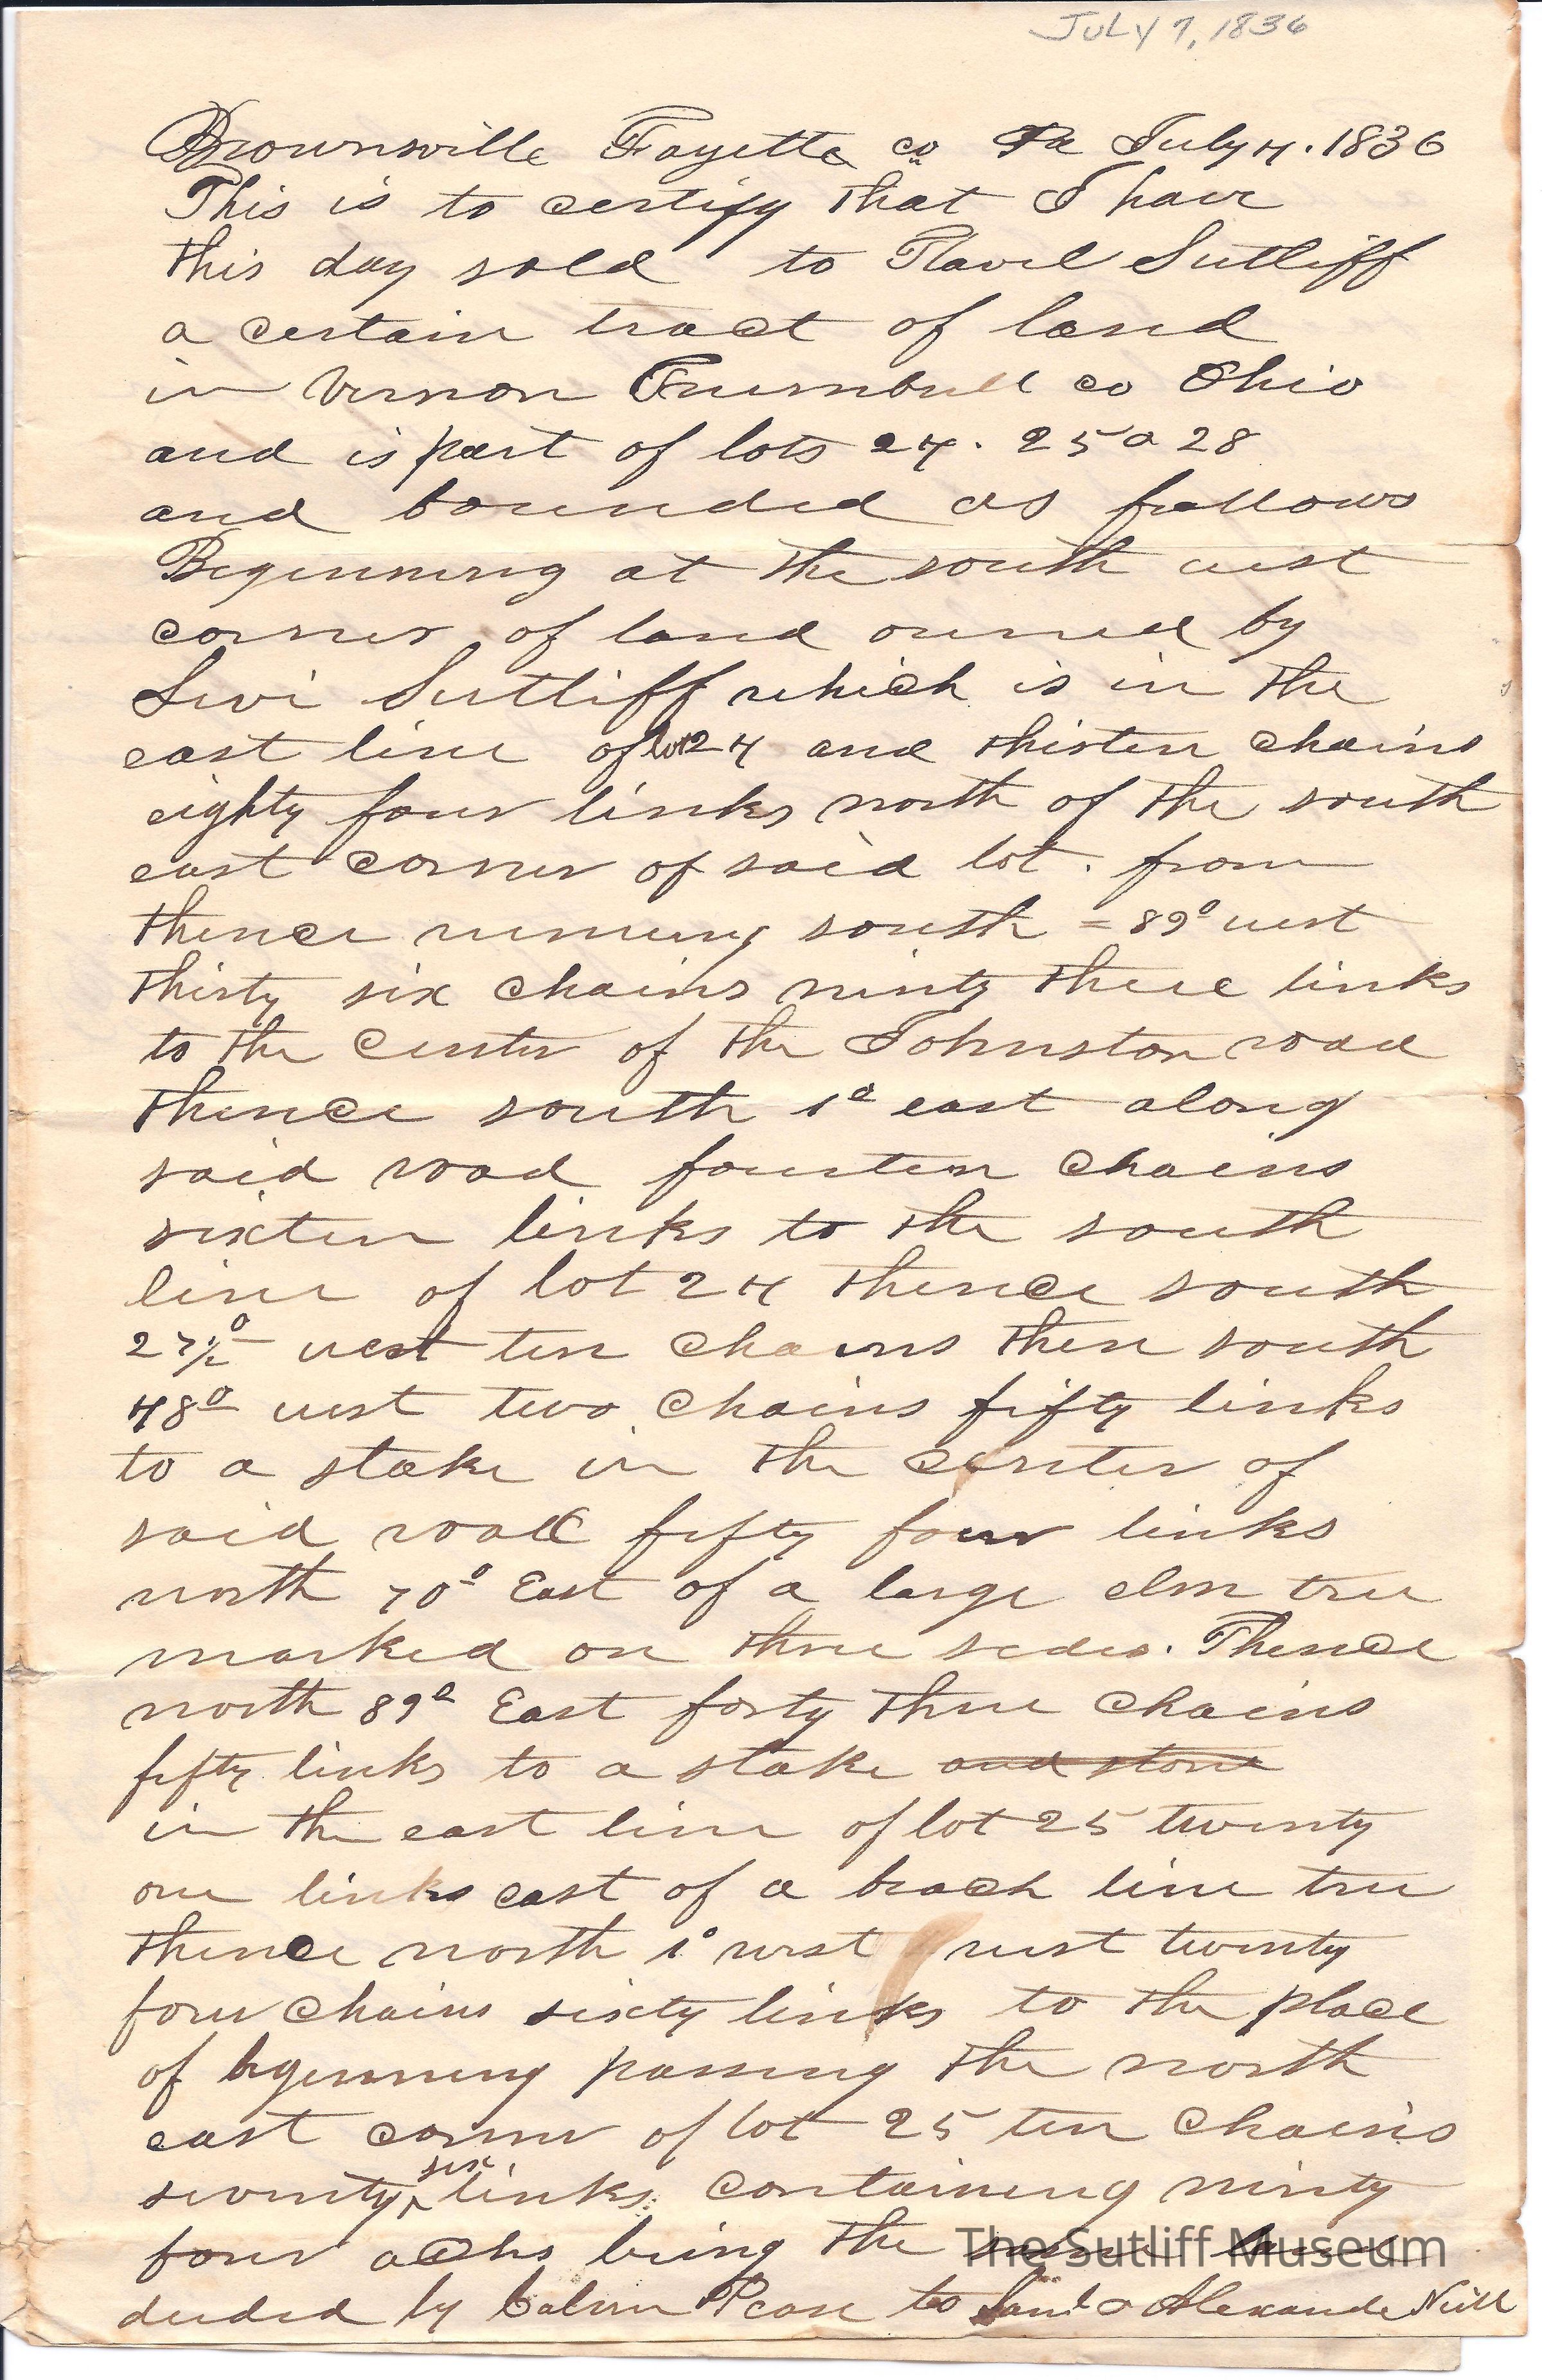 JULY 7, 1836
Brownsville Fayette co Pa July 4. 1836
This is to certify that I have
this day sold to Flavel Sutliff
a certain tract of land
in Vernon Trumbull co Ohio
and is part of lots 24. 25 & 28
and bounded as follows
Beginning at the south west
corner of land owned by
Levi Sutliff which is in the
east line of lot 24 and thirten chains
eighty four links north of the south
east corner of said lot. from
thence running south = 89° west
thirty six chains ninty three links
to the center of the Johnston road
thence south 1° east along
said road fourteen chains
sixteen links to the south
line of lot 24 thence south
27 1/2° west ten chains then south
48° west two chains fifty links
to a stake in the center of
said road fifty four links
north 70° East of a large elm tree
marked on three sides. Thence
north 89° East forty three chains
fifty links to a stake and stone
in the east line of lot 25 twenty
one links east of a beach line tree
thence north 1° west west twenty
four chains sixty links to the place
of bgenning passing the north
east corner of lot 25 ten chains
seventy six links. containing ninty
four being the
deeded by Calvin Pease to Saml & Alexander Neill
The Sutliff Museum